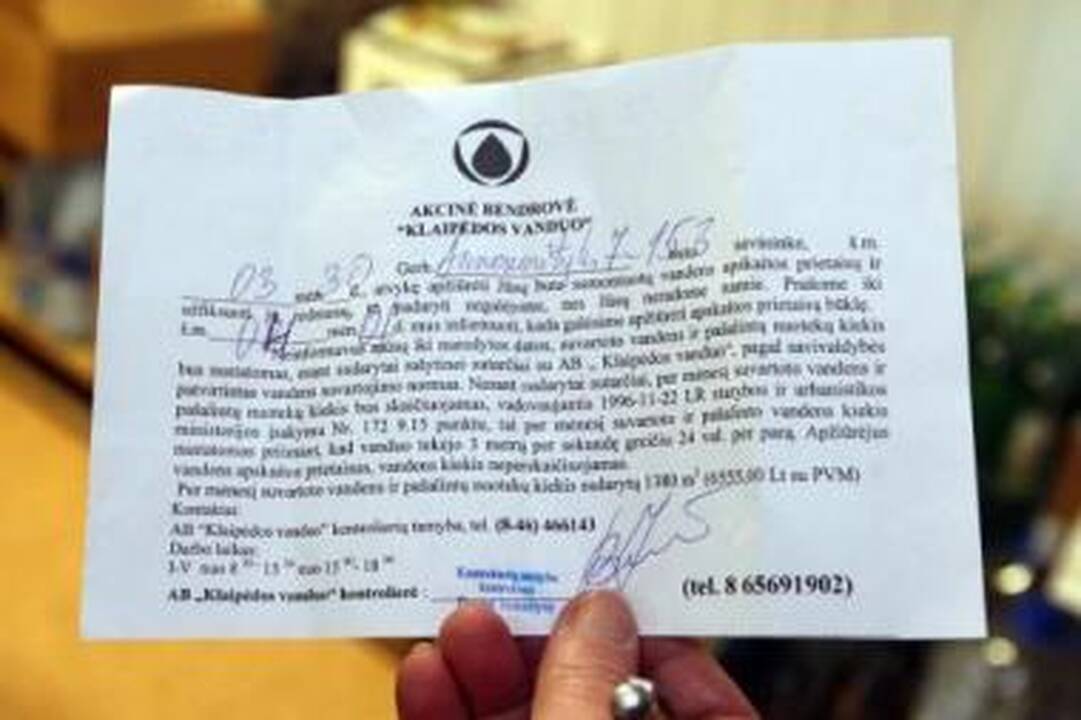 AKCINĖ BENDROVĖ
"KLAIPĖDOS VANDUO"
Gerb. 7-153 savininke, š.m.
03 mėn 30 d. atvykę apžiūrėti Jūsų bute sumontuotų vandens apskaitos prietaisų ir
užfiksuoti jų rodmenis, to padaryti negalėjome, nes Jūsų neradome namie. Prašome iki
š.m. 04 mėn. 01 d. mus informuoti, kada galėsime apžiūrėti apskaitos prietaisų būklę.
Neinformavus mūsų iki nurodytos datos, suvartoto vandens ir pašalintų nuotekų kiekis
bus nustatomas, esant sudarytai rašytinei sutarčiai su AB „ Klaipėdos vanduo", pagal savivaldybės
patvirtintas vandens suvartojimo normas. Nesant sudarytai sutarčiai, per mėnesį suvartoto vandens ir
pašalintų nuotekų kiekis bus skaičiuojamas, vadovaujantis 1996-11-22 LR statybos ir urbanistikos
ministerijos įsakymu Nr. 172 9.15 punktu, tai per mėnesį suvartoto ir pašalinto vandens kiekis
nustatomas priėmus, kad vanduo tekėjo 3 metrų per sekundę greičiu 24 val. per parą. Apžiūrėjus
vandens apskaitos prietaisus, vandens kiekis neperskaičiuojamas.
Per mėnesį suvartoto vandens ir pašalintų nuotekų kiekis sudarytų 1380 m³ (6555,00 Lt su PVM)
Kontaktai:
AB "Klaipėdos vanduo" kontrolierių tarnyba, tel. (8-46) 466143
Darbo laikas:
I-V nuo 8 - 15 - 18
AB „Klaipėdos vanduo" kontrolierė :
(tel. 8 65691902)